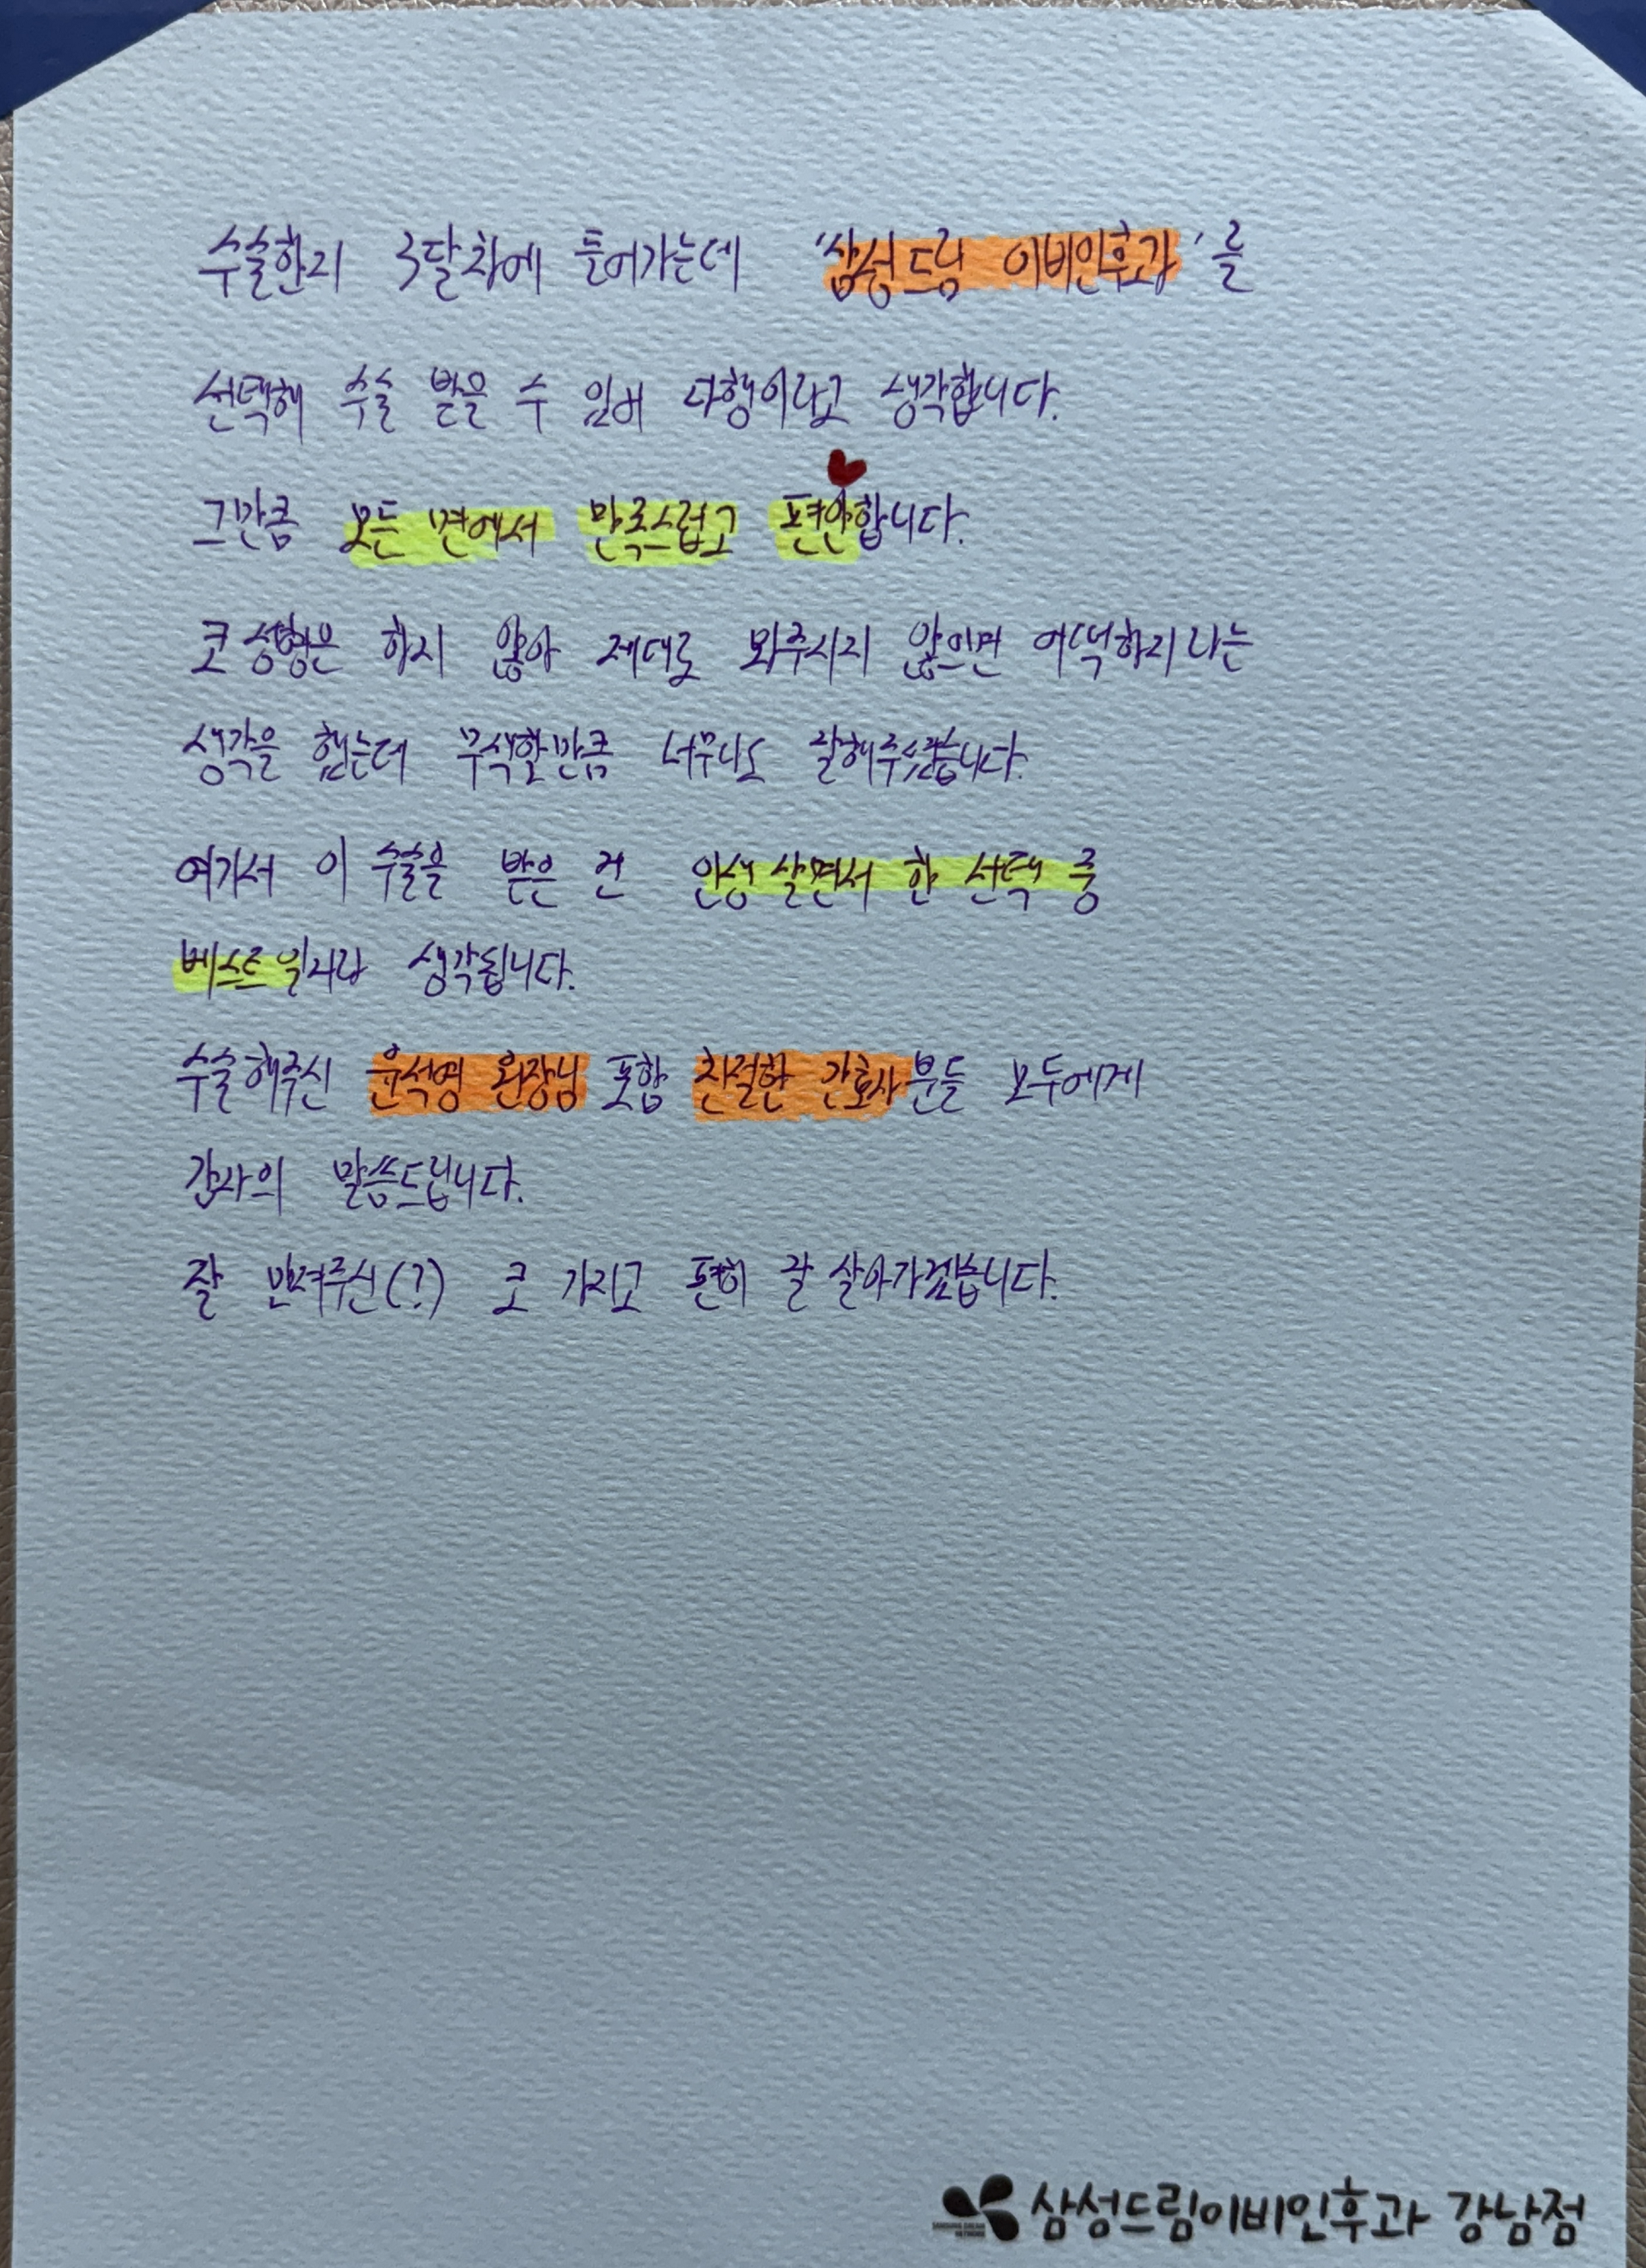 수술한지 3달차에 들어가는데 '삼성드림 이비인후과'를
선택해 수술 받을 수 있어 다행이라고 생각합니다.
그만큼 모든 면에서 만족스럽고 편안합니다.
코 성형은 하지 않아 제대로 봐주시지 않으면 어떡하지라는
생각을 했는데 무색할만큼 너무나도 잘해주셨습니다.
여기서 이 수술을 받은 건 인생 살면서 한 선택 중
베스트일거라 생각됩니다.
수술해주신 윤석영 원장님 포함 친절한 간호사분들 모두에게
감사의 말씀드립니다.
잘 만져주신(?) 코 가지고 편히 잘 살아가겠습니다.
삼성드림이비인후과 강남점